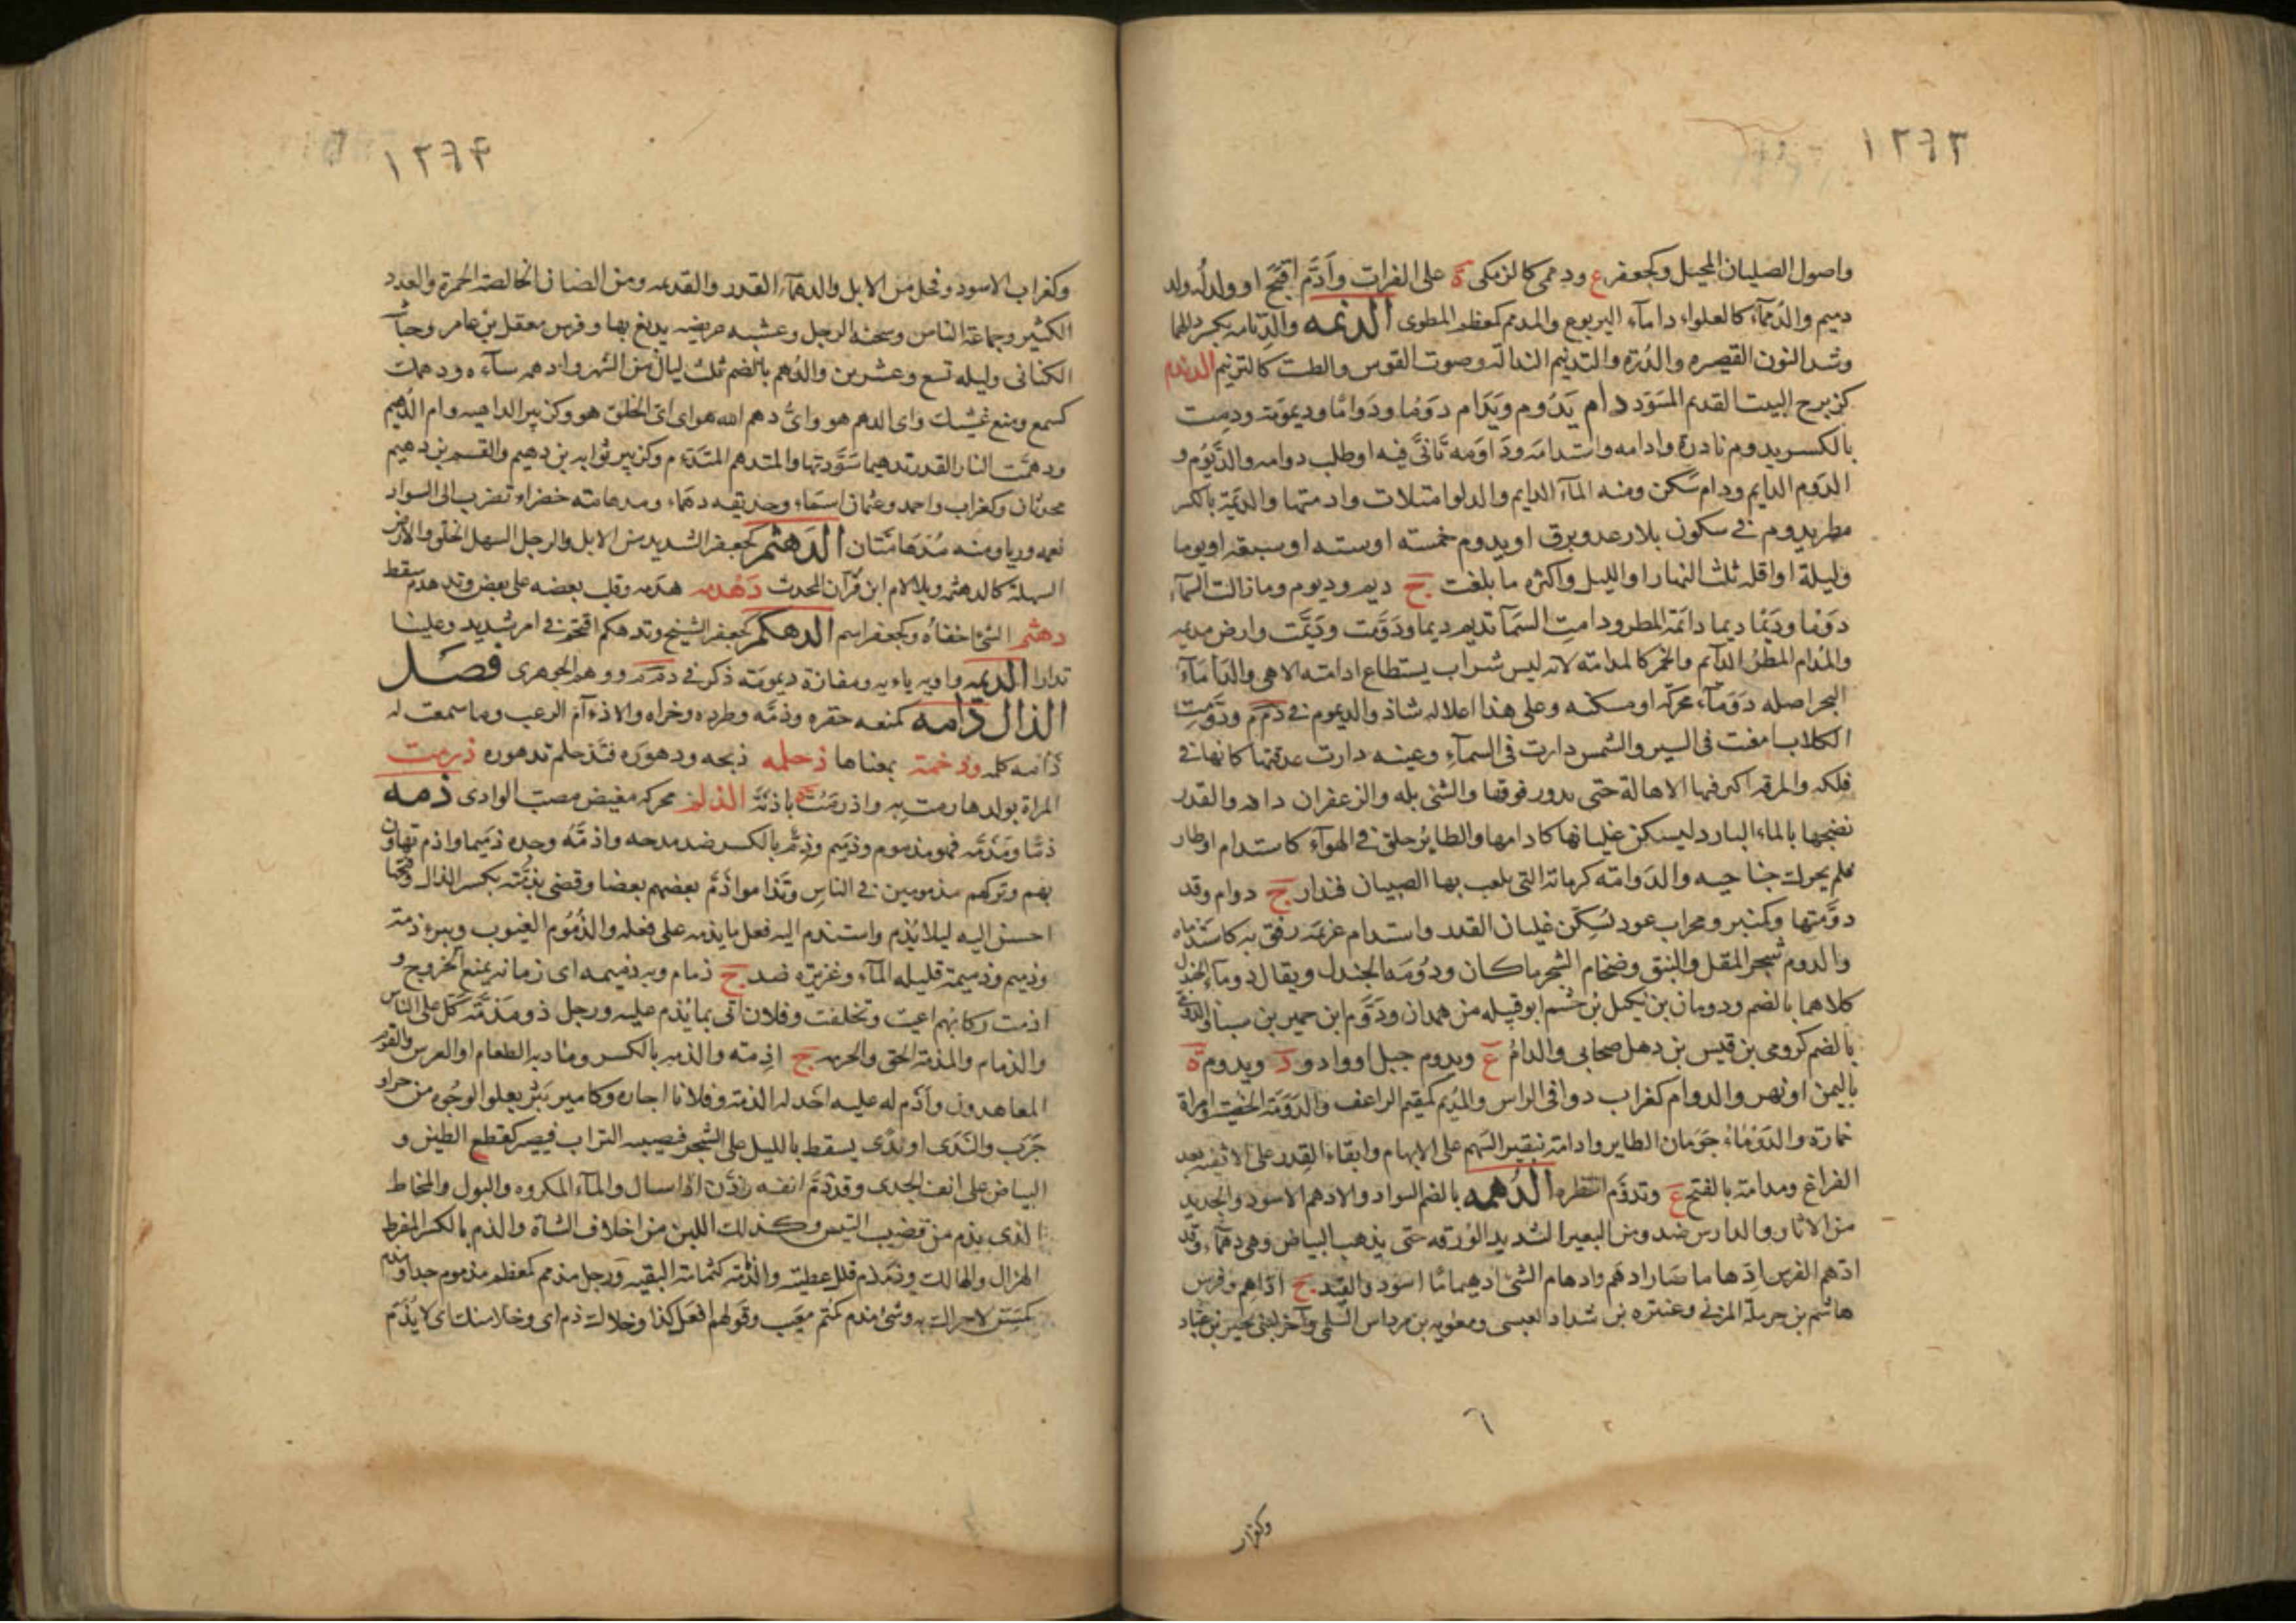 ١٢٦٣
واصول الصليان المحيل وكجعفر ع ودممى كالزمكى ة على الفرات وأدم اقبح او ولد له ولد
دميم والدمماء كالغلواء داماء اليربوع والمدمم كمعظم المطوى الدنمه والدنامه بكسر دالهما
وشد النون القصيره والذرة والتدنيم النذالة وصوت القوس والطست كالترنيم الدندم
كزبرج البيت القديم المسود دام يدوم ويدام دوما ودواما وديمومة ودمت
بالكسر يدوم نادرة وادامه واستدامه وداومه تأنى فيه او طلب دوامه والديوم و
الدوم الدايم ودام سكن ومنه الماء الدايم والدلو امتلات وادمتها والديمة بالكسر
مطر يدوم فى سكون بلا رعد وبرق او يدوم خمسة او ستة او سبعة او يوما
وليلة او اقله ثلث النهار او الليل واكثره ما بلغت ج ديم وديوم ومازالت السماء
دوما دوما وديما ديما دائمة المطر ودامت السماء تديم ديما ودومت وديمت وارض مديمه
والمدام المطر الدائم والخمر كالمدامة لانه ليس شراب يستطاع ادامته الا هى والدأماء
البحر اصله دوماء محركه او مسكنه وعلى هذا اعلاله شاذ والديموم فى دمم ودومت
الكلاب امعنت فى السير والشمس دارت فى السماء وعينه دارت حدقتها كانها فى
فلكه والمرقه اكثر فيها الاهالة حتى يدور فوقها والشئ بله والزعفران دافه والقدر
نضحها بالماء البارد ليسكن غليانها كادامها والطاير حلق فى الهواء كاستدام او طار
فلم يحرك جناحيه والدوامة كرمانة التى يلعب بها الصبيان فتدار ج دوام وقد
دومتها وكمنبر ومحراب عود يسكن غليان القدر واستدام غريمه رفق به كاستدماه
والدوم شجر المقل والنبق وضخام الشجر ما كان ودومة الجندل ويقال دوماء الجندل
كلاهما بالضم ودومان بن بكيل بن جشم ابو قبيله من همدان ودوم ابن حمير بن سبا والدومى
بالضم كرومى بن قيس بن ذهل صحابى والدام ع ويدوم جبل او واد و د ويدوم ة
باليمن او نهر والدوام كغراب دوار فى الراس والمديم كمقيم الراعف والدومة الخصية وامراة
خمارة والدومان حومان الطاير وادامة تنقير السهم على الابهام وابقاء القدر على الاثفيه بعد
الفراغ ومدامة بالفتح ع وتدوم انتظره الدهمه بالضم السواد والادهم الاسود والجديد
من الاثار والدارس ضد ومن البعير الشديد الورقه حتى يذهب البياض وهى دهماء وقد
ادهم الفرس ادهماما صار ادهم وادهام الشئ ادهيماما اسود والقيد ج اداهم وفرس
هاشم بن حرملة المرى وعنتره بن شداد العبسى ومعويه بن مرداس السلمى وآخر لبنى بجير بن عباد
وكغراب
١٢٦٤
وكغراب الاسود وفحل من الابل والدهماء القدر والقديمه ومن الضان الخالصة الحمرة والعدد
الكثير وجماعة الناس وسحنة الرجل وعشبه عريضه يدبغ بها وفرس معقل بن عامر وحباشة
الكنانى وليله تسع وعشرين والدهم بالضم ثلث ليال من الشهر وادهمه ساءه ودهمك
كسمع ومنع غشيك واى الدهم هو واى دهم الله هو اى اى الخلق هو وكزبير الداهيه وام الدهيم
ودهمت النار القدر تدهيما سودتها والمتدهم المتدءم وكزبير ثوابه بن دهيم والقسم بن دهيم
محدثان وكغراب واحمد وعثمان اسماء وحديقه دهماء ومدهامته خضراء تضرب الى السواد
نعمه وريا ومنه مدهامتان الدهثم كجعفر الشديد من الابل والرجل السهل الخلق والارض
السهلة كالدهثمه وبلا لام ابن قران المحدث دهدمه هدمه وقلب بعضه على بعض وتدهدم سقط
دهشم الشئ اخفاه وكجعفر اسم الدهكم كجعفر الشيخ وتدهكم اقتحم فى امر شديد وعلينا
تدارا الديمه واويه يائيه ومفازة ديمومة ذكر فى دمم ووهم الجوهرى فصل
الذال ذامه كمنعه حقره وذمه وطرده وخزاه والاذءآم الرعب وما سمعت له
ذأمة كلمه وذخمته بمعناها ذحلمه ذبحه ودهوره فتذحلم تدهوره ذرمت
المراة بولدها رمت به واذرمت باذنة الذلم محركه مغيض مصب الوادى ذمه
ذما ومذمة فهو مذموم وذميم وذم بالكسر ضد مدحه واذمه وجده ذميما واذم تهاون
بهم وتركهم مذمومين فى الناس وتذاموا ذم بعضهم بعضا وقضى بذمته بكسر الذال وفتحها
احسن اليه ليلا يذم واستذم اليه فعل ما يذمه على فعله والذموم العيوب وبير ذمة
وذميم وذميمة قليله الماء وغزيره ضد ج ذمام وبه ذميمه اى زمانه يمنع الخروج و
اذمت ركابهم اعيت وتخلفت وفلان اتى بما يذم عليه ورجل ذو مذمة كل على الناس
والذمام والمذمة الحق والحرمه ج اذمة والذمه بالكسر ومادبة الطعام او العرس والقوم
المعاهدون واذم له عليه اخذ له الذمة وفلانا اجاره وكامير بثر يعلو الوجوه من حر او
جرب والندى او ندى يسقط بالليل على الشجر فيصيبه التراب فيصير كقطع الطين و
البياض على انف الجدى وقد ذم انفه وذن اذا سال والماء المكروه والبول والمخاط
الذى يذم من قضيب التيس وكذلك اللبن من اخلاف الشاة والذم بالكسر المفرط
الهزال والهالك وذمذم قلل عطيته والذمة كثمامة البقيه ورجل مذمم كمعظم مذموم جدا ومذم
كمسن لا حراك به وشئ مذم كمتم معيب وقولهم افعل كذا وخلاك ذم اى وخلا منك اى لا يذم